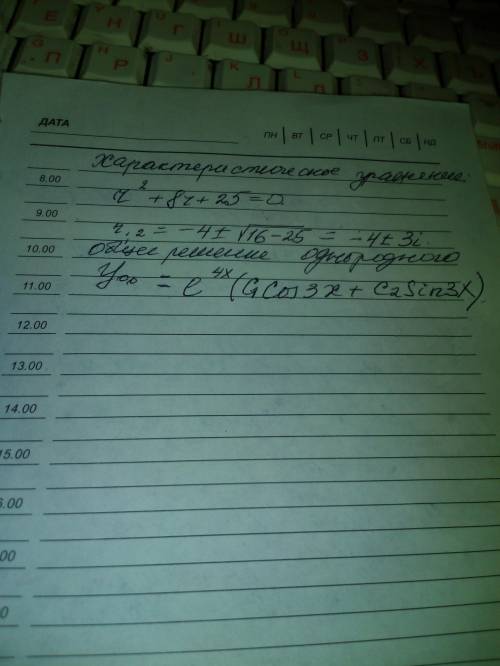 Й Н Г Ш Щ З Х
П Р Л
ДАТА
ПН ВТ СР ЧТ ПТ СБ НД
Характеристическое уравнение:
8.00
r² + 8r + 25 = 0
9.00
r₁,₂ = -4 ± √16-25 = -4 ± 3i.
10.00
общее решение однородного
Yоо = e^4x (C₁Cos3x + C₂Sin3x)
11.00
12.00
13.00
14.00
15.00
6.00
00
0